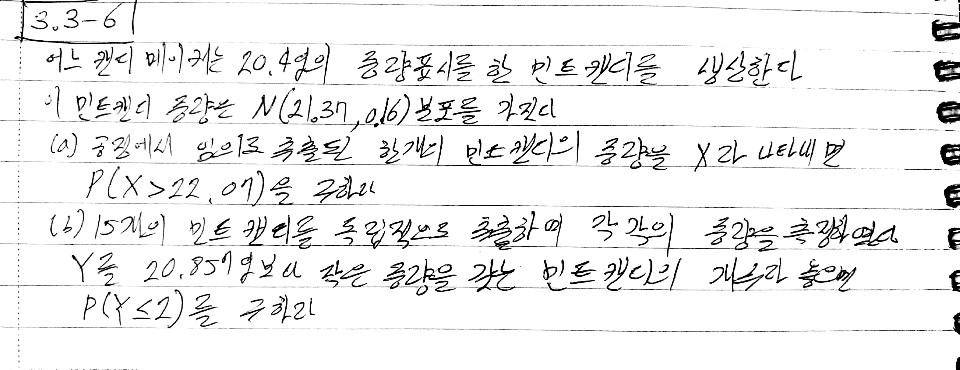 3.3-6
어느 캔디 메이커는 20.4염의 중량표시를 한 민트캔디를 생산한다
이 민트캔디 중량은 N(21.37, 0.16)분포를 가진다
(a) 공정에서 임의로 추출된 한개의 민트캔디의 중량을 X라 나타내면
P(X>22.07)을 구하라
(b) 15개의 민트캔디를 독립적으로 추출하여 각각의 중량을 측정하였다
Y를 20.857염보다 작은 중량을 갖는 민트캔디의 개수라 놓으면
P(Y≤2)를 구하라